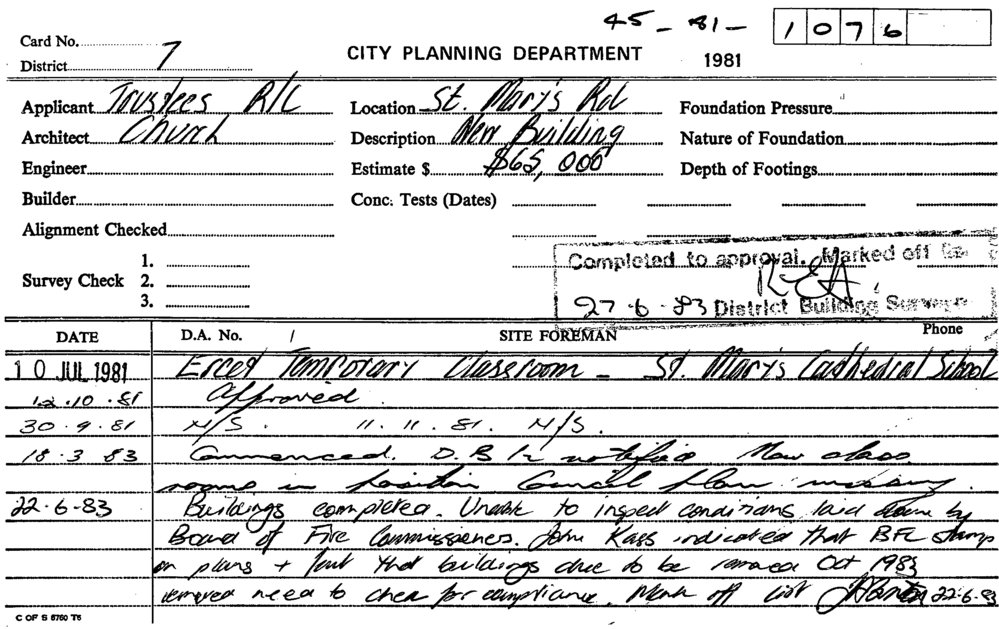 45-81- 1076
Card No.
District 7
CITY PLANNING DEPARTMENT 1981
Applicant Trustees R/C Location St. Mary's Rd Foundation Pressure
Architect Church Description New Building Nature of Foundation
Engineer Estimate $ $65,000 Depth of Footings
Builder Conc. Tests (Dates)
Alignment Checked
1.
Survey Check 2.
3.
Completed to approval. Marked off
27-6-83 District Building
DATE D.A. No. / SITE FOREMAN Phone
10 JUL 1981 Erect Temporary Classroom - St. Mary's Cathedral School
12.10.81 Approved.
30.9.81 N/S. 11.11.81. N/S.
18.3 83 Commenced. D.B notified New class
rooms in position Council plans missing.
22-6-83 Buildings completed. Unable to inspect conditions laid down by
Board of Fire Commissioners. John Kass indicated that BFC stamp
on plans + that buildings due to be removed Oct 1983
removed need to check for compliance. Mark off list 22-6-83
C OF S 6760 T6